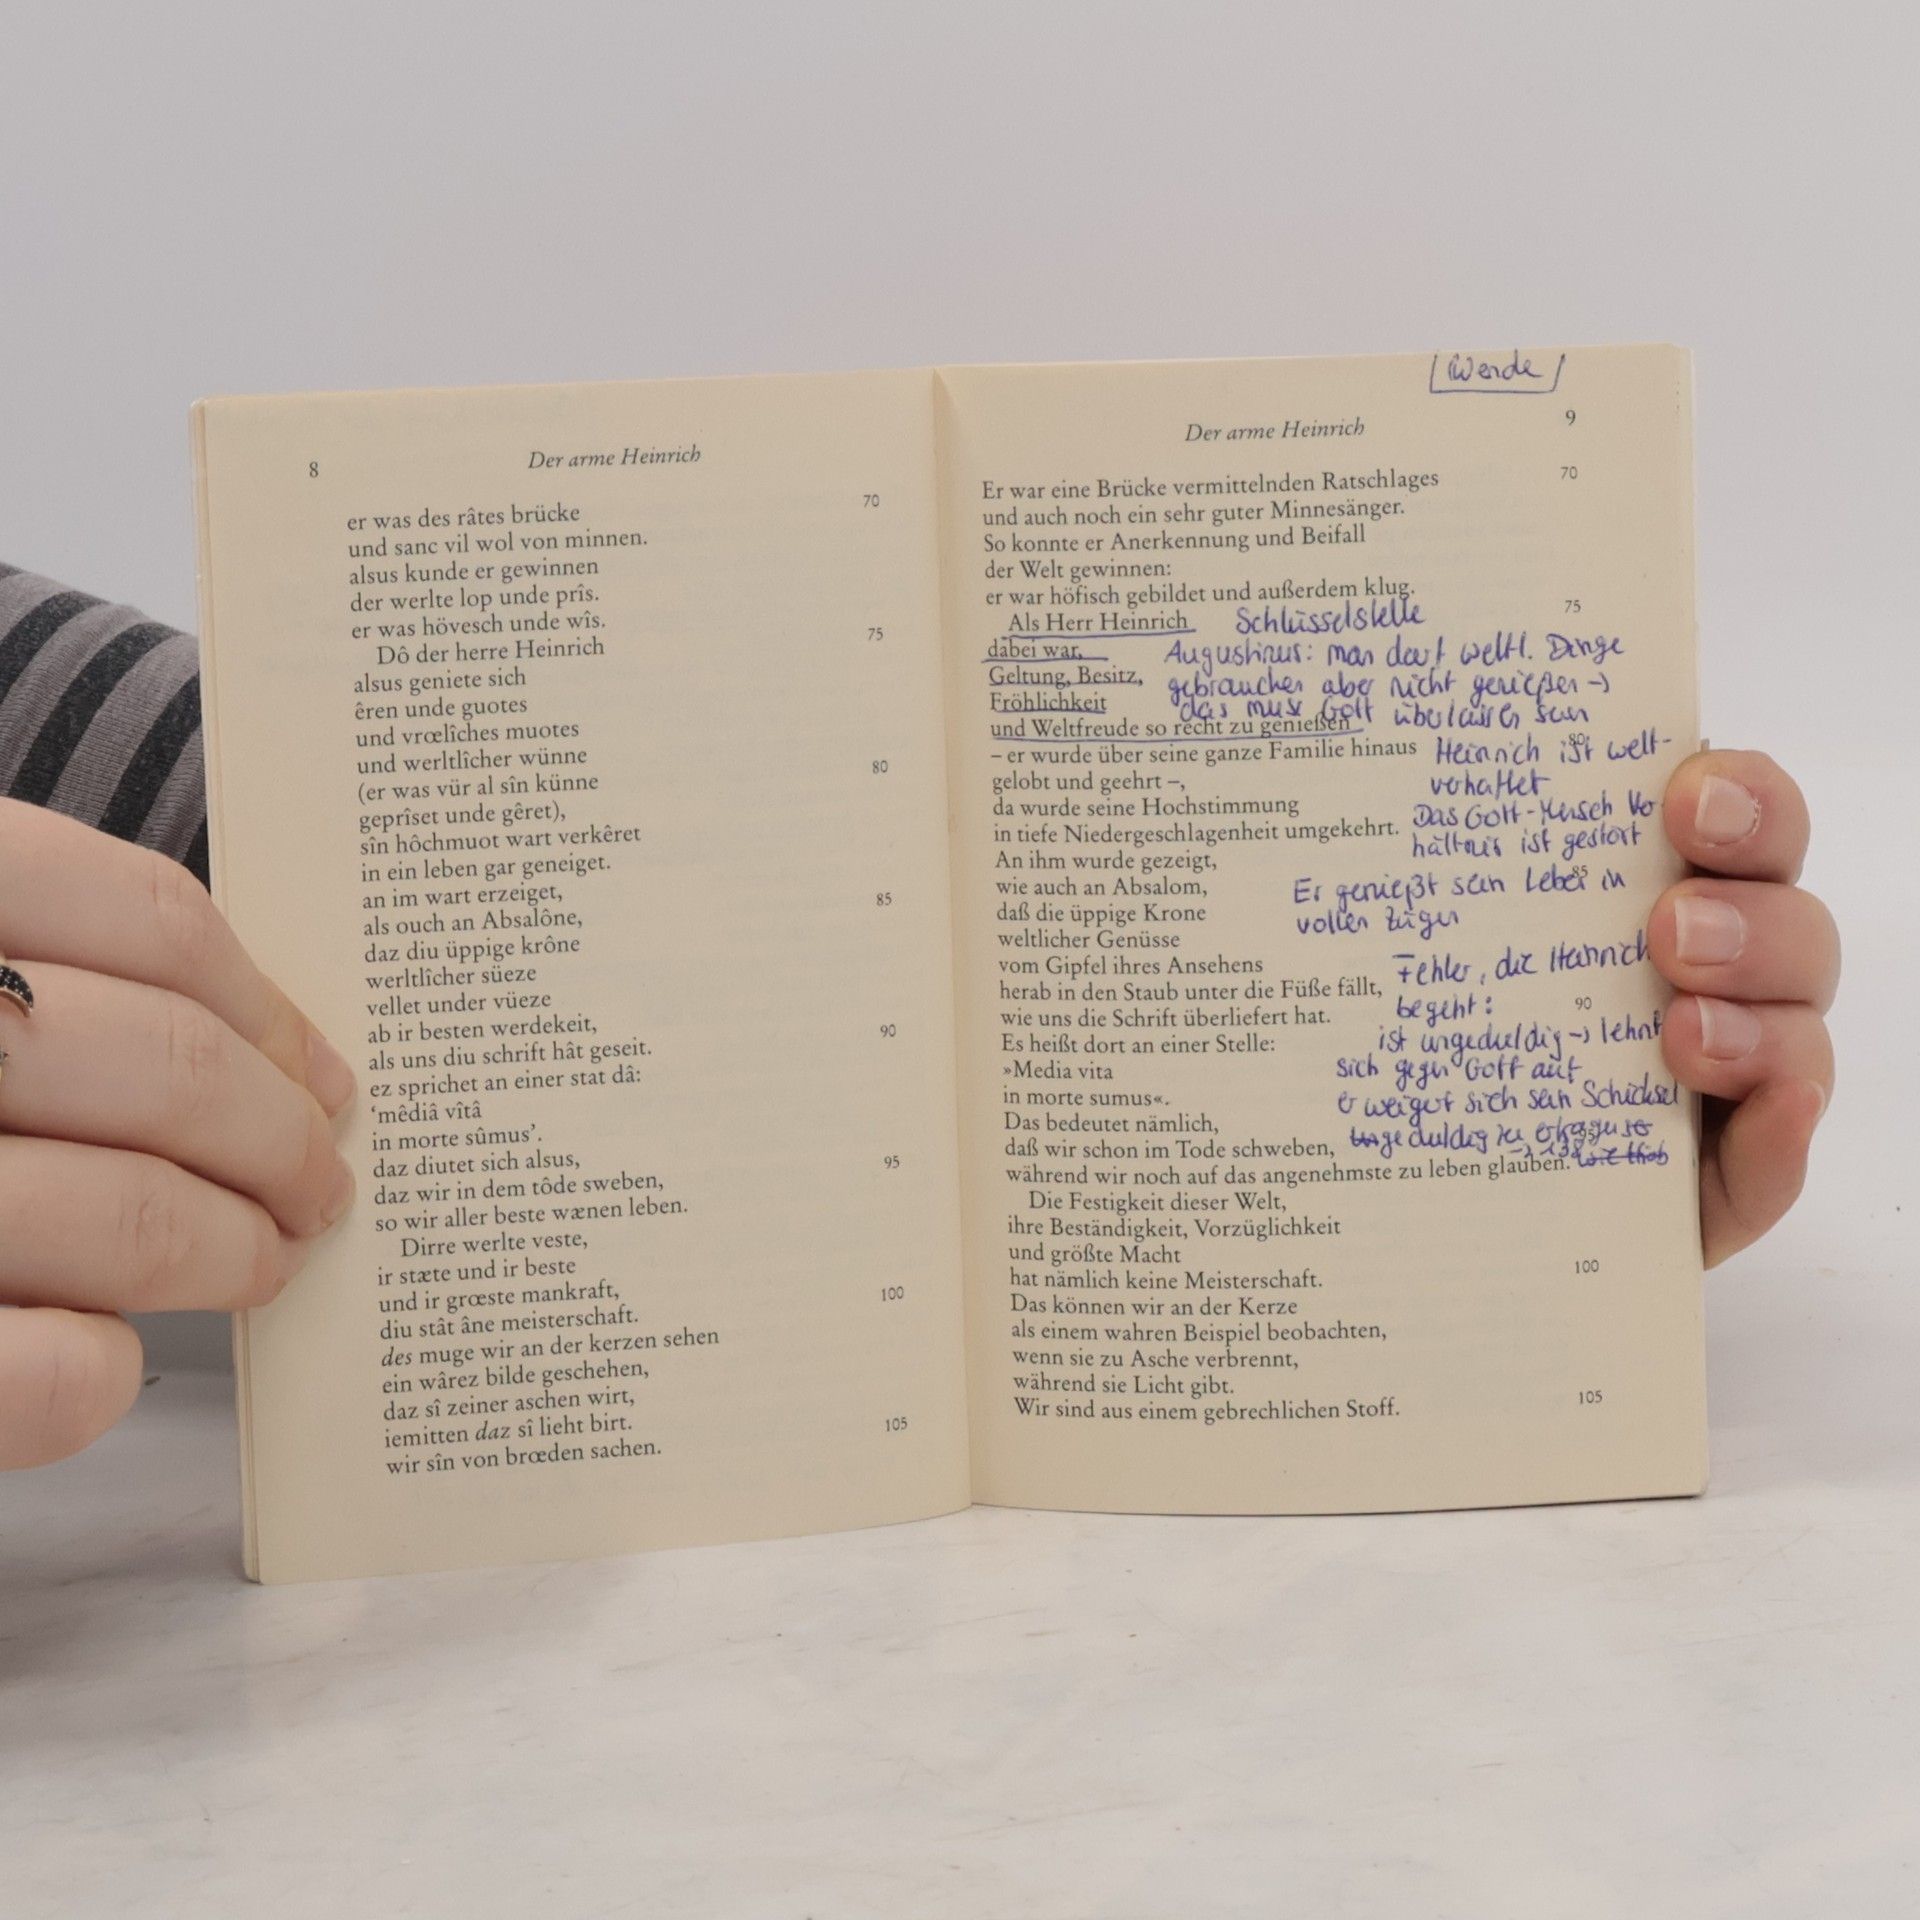 8
Der arme Heinrich
er was des râtes brücke 70
und sanc vil wol von minnen.
alsus kunde er gewinnen
der werlte lop unde prîs.
er was hövesch unde wîs.
Dô der herre Heinrich 75
alsus geniete sich
êren unde guotes
und vrœlîches muotes
und werltlîcher wünne
(er was vür al sîn künne 80
geprîset unde gêret),
sîn hôchmuot wart verkêret
in ein leben gar geneiget.
an im wart erzeiget,
als ouch an Absalône, 85
daz diu üppige krône
werltlîcher süeze
vellet under vüeze
ab ir besten werdekeit,
als uns diu schrift hât geseit. 90
ez sprichet an einer stat dâ:
‘mêdiâ vîtâ
in morte sûmus’.
daz diutet sich alsus,
daz wir in dem tôde sweben, 95
so wir aller beste wænen leben.
Dirre werlte veste,
ir stæte und ir beste
und ir grœste mankraft,
diu stât âne meisterschaft. 100
des muge wir an der kerzen sehen
ein wârez bilde geschehen,
daz sî zeiner aschen wirt,
iemitten daz sî lieht birt.
wir sîn von brœden sachen. 105
Wende
Der arme Heinrich
9
Er war eine Brücke vermittelnden Ratschlages 70
und auch noch ein sehr guter Minnesänger.
So konnte er Anerkennung und Beifall
der Welt gewinnen:
er war höfisch gebildet und außerdem klug.
Als Herr Heinrich Schlüsselstelle 75
dabei war, Augustinus: man darf weltl. Dinge
Geltung, Besitz, gebrauchen aber nicht genießen →
Fröhlichkeit das muss Gott überlassen sein
und Weltfreude so recht zu genießen
– er wurde über seine ganze Familie hinaus Heinrich ist welt- 80
gelobt und geehrt –, verhaftet
da wurde seine Hochstimmung Das Gott-Mensch Ver-
in tiefe Niedergeschlagenheit umgekehrt. hältnis ist gestört
An ihm wurde gezeigt,
wie auch an Absalom, Er genießt sein Leben in 85
daß die üppige Krone vollen Zügen
weltlicher Genüsse
vom Gipfel ihres Ansehens Fehler, die Heinrich
herab in den Staub unter die Füße fällt,
wie uns die Schrift überliefert hat. begeht: 90
Es heißt dort an einer Stelle: ist ungeduldig → lehnt
»Media vita sich gegen Gott auf
in morte sumus«. er weigert sich sein Schicksal
Das bedeutet nämlich,
daß wir schon im Tode schweben, geduldig zu ertragen
während wir noch auf das angenehmste zu leben glauben.
Die Festigkeit dieser Welt,
ihre Beständigkeit, Vorzüglichkeit
und größte Macht
hat nämlich keine Meisterschaft. 100
Das können wir an der Kerze
als einem wahren Beispiel beobachten,
wenn sie zu Asche verbrennt,
während sie Licht gibt.
Wir sind aus einem gebrechlichen Stoff. 105